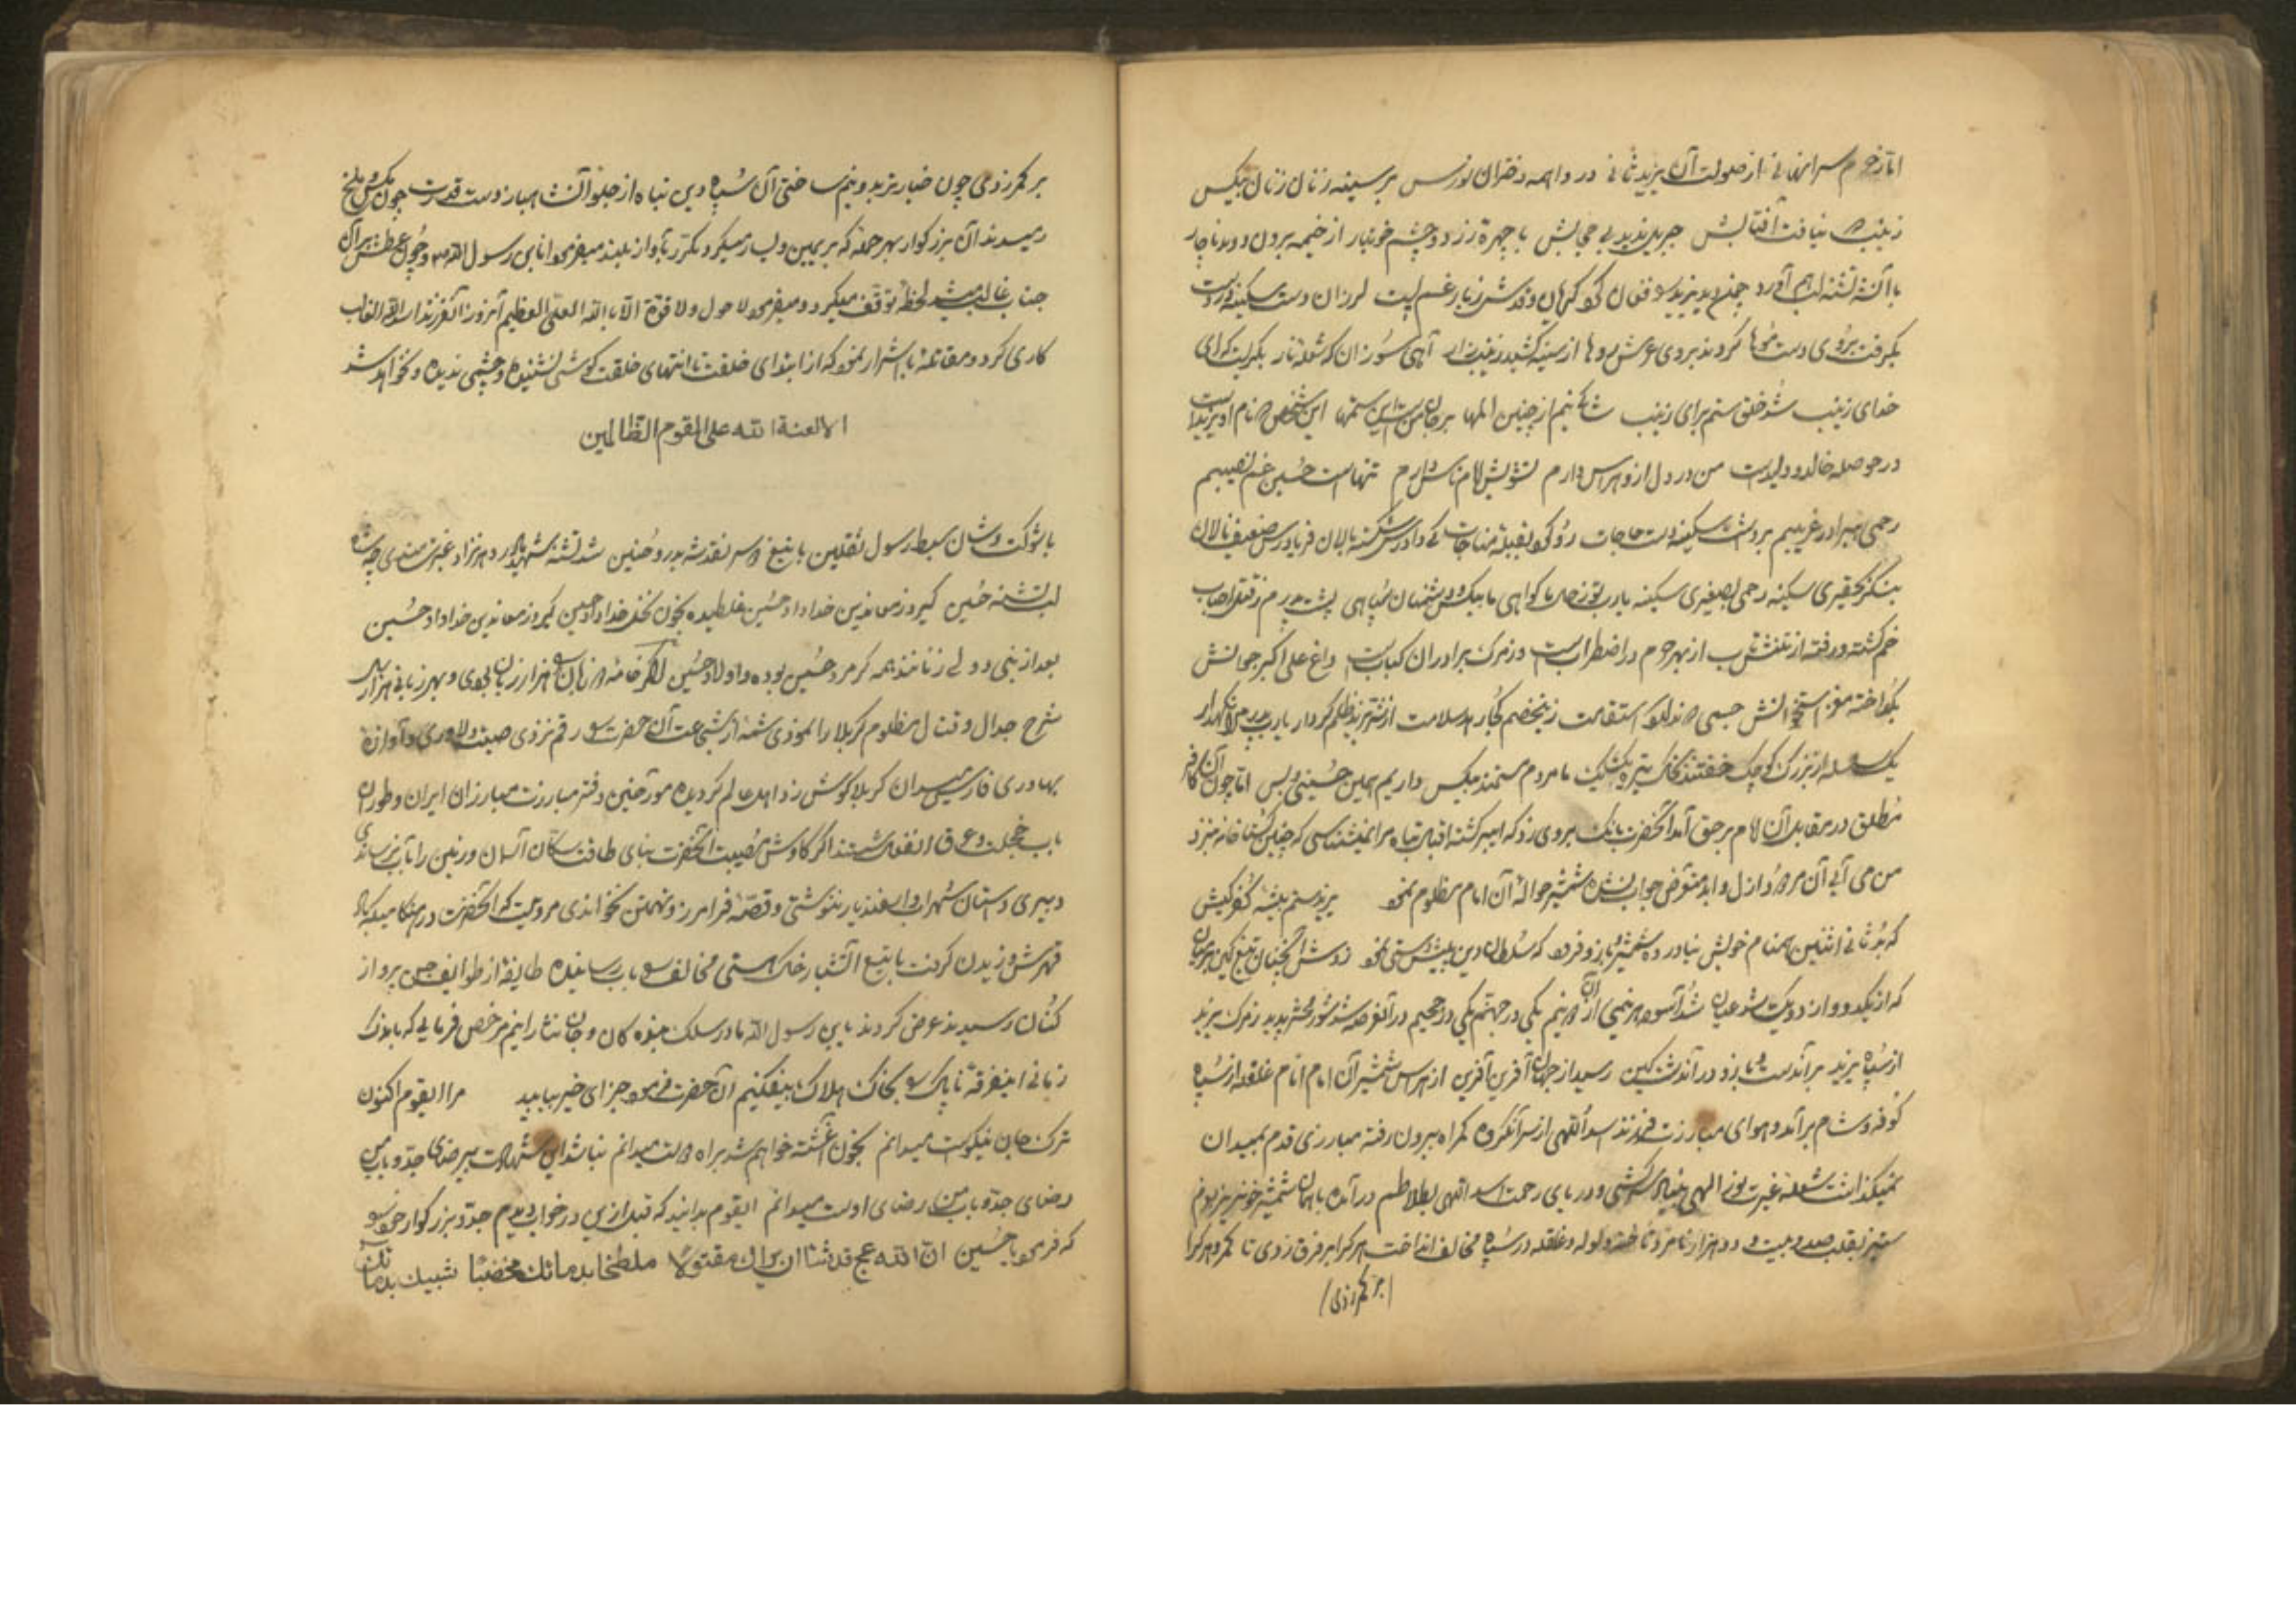 اما از حرم سرای نهانی از صولت آن یزید ثانی در واهمه دختران نورس بر سینه زنان زنان بیکس
زینب نیافت آفتابش جبریل ندید بی حجابش با چهره زرد و چشم خونبار از خیمه برون دوید ناچار
با آن تشنه لب
بگرفت بروی دست موها کردند بروی عرش روها از سینه کشید زینب زار آهی سوزان که شعله نار بگریست که ای
خدای زینب شد خلق ستم برای زینب از چنین المها بر جان من است این ستمها این شخص که نام او یزید است
در حوصله خالد و ولید است من در دل از او هراس دارم تشویش امام ناس دارم تنهاست حسین غم نصیبم
رحمی به برادر غریبم برداشت سکینه دست حاجات رو کرد بقبله مناجات کی دادرس شکسته بالان فریادرس ضعیف نالان
بنگر بحقیری سکینه رحمی بصغیری سکینه یا رب تو ز حال ما گواهی ما بیکس و دشمنان سپاهی پشت پدرم ز قتل احباب
خم گشته و رفته از تنش تاب از بهر حرم در اضطراب است وز مرگ برادران کباب است داغ علی اکبر جوانش
بگداخته مغز استخوانش جسمی که ندارد استقامت زین خصم کجا رهد سلامت از شر یزید ظلم کردار یا رب پدر مرا نگهدار
یک سلسله از بزرگ و کوچک خفتند بخاک تیره یک یک ما مردم مستمند بیکس داریم همین حسین و بس اما چون آن کافر
مطلق در مقابل آن امام بر حق آمد آنحضرت بانگ بروی زد که ای برگشته اقبال تباه مرا نمیشناسی که چنین گستاخانه بنزد
من می آیی آن مردود ازل و ابد متعرض جواب نشده شمشیر حواله آن امام مظلوم نمود یزید ستم پیشه کفر کیش
که بد ثانی اثنین همنام خویش نیاورده شمشیر و بازو فرود که سلطان دین پیش دستی نمود
که از یک دو و از دو یک شد عیان شد آسوده هر نیمی از آن دو نیم یکی در جهنم یکی در جحیم در آن عرصه شد شور محشر پدید ز مرگ یزید
از سپاه یزید بر آن دست و بازو در آن دشت کین رسید از جهان آفرین آفرین از هراس شمشیر آن امام انام غلغله از سپاه
کوفه و شام برآمد و هوای مبارزت فرزند اسد اللهی از سر آن گروه گمراه بیرون رفته مبارزی قدم بمیدان
نمیگذاشت شعله غیرت نور الهی بنیاد سرکشی و دریای رحمت اسد اللهی بتلاطم درآمده با همان شمشیر خونریز بعزم
ستیز بقلب صد و بیست و دو هزار نامرد تاخته ولوله و غلغله در سپاه مخالف انداخت هر کرا بر فرق زدی تا کمر و هر کرا
بر کمر زدی
بر کمر زدی چون خیار تر بدو نیم ساختی آن سپاه دین تباه از جلو آن شاهباز دست قدرت چون مگس و ملخ
رمیدند آن بزرگوار بهر حمله که بر یمین و یسار میکرد مکرر بآواز بلند میفرمود انا بن رسول الله و چون عطش بر آن
جناب غالب میشد لحظه توقف میکرد و میفرمود لا حول ولا قوة الا بالله العلی العظیم آنروز آن فرزند اسد الله الغالب
کاری کرد و مقاتله با اشرار نمود که از ابتدای خلقت تا انتهای خلقت گوشی نشنیده و چشمی ندیده و نخواهد شد
الا لعنة الله علی القوم الظالمین
با شوکت و شان سبط رسول ثقلین با تیغ دو سر نقد شه بدر و حنین شد تشنه شهید
لب تشنه حسین گیرو ز معاندین خداداد حسین غلطیده بخون نخل خداداد حسین گیرو ز معاندین خداداد حسین
بعد از نبی و ولی زنانند همه گر مرد حسین بوده و اولاد حسین اگر خامه دو زبان بهزار زبان بودی و بهر زبانی هزار
شرح جدال و قتال مظلوم کربلا را نمودی شمه از شجاعت آن حضرت رقم نزدی صیت دلاوری و آوازه
بهادری فارس میدان کربلا گوش زد اهل عالم گردیده مورخین دفتر مبارزت مبارزان ایران و توران
بآب خجلت و عرق انفعال شستند اگر کاوش مصیبت آنحضرت بنای طاقت سکان آسمان و زمین را بآب نرساندی
دبیری داستان سهراب و اسفندیار ننوشتی و قصه فرامرز و تهمتن نخواندی مرویست که آنحضرت در هنگامیکه باد
قهرش وزیدن گرفت با تیغ آتشبار خاک هستی مخالف بباد رسانیده طایفه از طوایف جن پرواز
کنان رسیدند عرض کردند یابن رسول الله ما در سلک بندگان و جان نثارانیم مرخص فرمایی که باندک
زمانی اینفرقه ناپاک را بخاک هلاک بیفکنیم آن حضرت فرمود جزای خیر بیابید مرا ایقوم اکنون
ترک جان نیکوست میدانم بخون آغشته خواهم شد براه دوست میدانم نباشد این شهادت بی رضای جد و باب من
رضای جد و باب من رضای اوست میدانم ایقوم بدانید که قبل ازین در خواب دیدم جد بزرگوار خود را
که فرمود یا حسین ان الله عج قد شاء ان یراک مقتولا ملطخا بدمائک مخضبا شیبک بدمائک